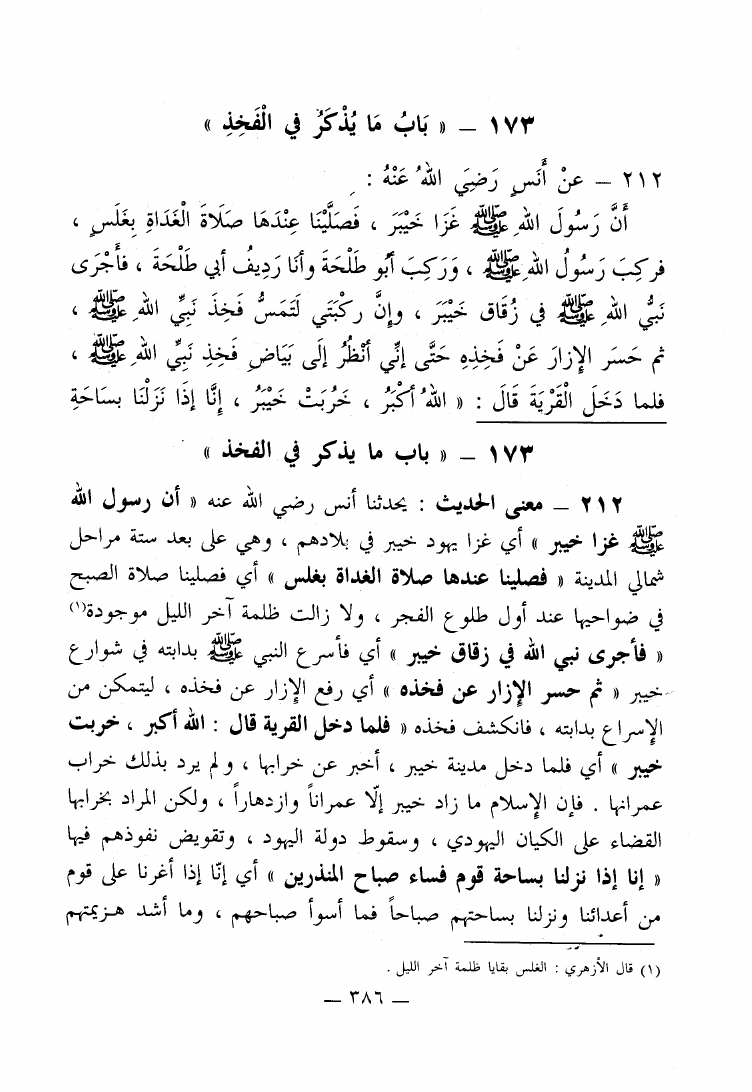 ١٧٣ – « بَابُ مَا يُذْكَرُ في الْفَخِذِ »
٢١٢ – عَنْ أَنَسٍ رَضِيَ اللهُ عَنْهُ :
أَنَّ رَسُولَ اللهِ ﷺ غَزَا خَيْبَرَ ، فَصَلَّيْنَا عِنْدَهَا صَلَاةَ الْغَدَاةِ بِغَلَسٍ ،
فركِبَ رَسُولُ اللهِ ﷺ ، وَرَكِبَ أَبُو طَلْحَةَ وأنَا رَدِيفُ أبي طَلْحَةَ ، فأَجْرَى
نَبِيُّ اللهِ ﷺ في زُقَاق خَيْبَرَ ، وإنَّ ركْبَتي لَتَمَسُّ فَخِذَ نَبِيِّ اللهِ ﷺ ،
ثم حَسَرَ الإزَارَ عَنْ فَخِذِهِ حَتَّى إنِّي أنْظُرُ إلَى بَيَاضِ فَخِذِ نَبِيِّ اللهِ ﷺ ،
فلما دَخَلَ الْقَرْيَةَ قَالَ : « اللهُ أكْبَرُ ، خَرِبَتْ خَيْبَرُ ، إنَّا إذَا نَزَلْنَا بسَاحَةِ
١٧٣ – « باب ما يذكر في الفخذ »
٢١٢ – معنى الحديث : يحدثنا أنس رضي الله عنه « أن رسول الله
ﷺ غزا خيبر » أي غزا يهود خيبر في بلادهم ، وهي على بعد ستة مراحل
شمالي المدينة « فصلينا عندها صلاة الغداة بغلس » أي فصلينا صلاة الصبح
في ضواحيها عند أول طلوع الفجر ، ولا زالت ظلمة آخر الليل موجودة(١)
« فأجرى نبي الله في زقاق خيبر » أي فأسرع النبي ﷺ بدابته في شوارع
خيبر « ثم حسر الإزار عن فخذه » أي رفع الإزار عن فخذه ، ليتمكن من
الإسراع بدابته ، فانكشف فخذه « فلما دخل القرية قال : الله أكبر ، خربت
خيبر » أي فلما دخل مدينة خيبر ، أخبر عن خرابها ، ولم يرد بذلك خراب
عمرانها . فإن الإسلام ما زاد خيبر إلّا عمراناً وازدهاراً ، ولكن المراد بخرابها
القضاء على الكيان اليهودي ، وسقوط دولة اليهود ، وتقويض نفوذهم فيها
« إنا إذا نزلنا بساحة قوم فساء صباح المنذرين » أي إنّا إذا أغرنا على قوم
من أعدائنا ونزلنا بساحتهم صباحاً فما أسوأ صباحهم ، وما أشد هزيمتهم
(١) قال الأزهري : الغلس بقايا ظلمة آخر الليل .
– ٣٨٦ –